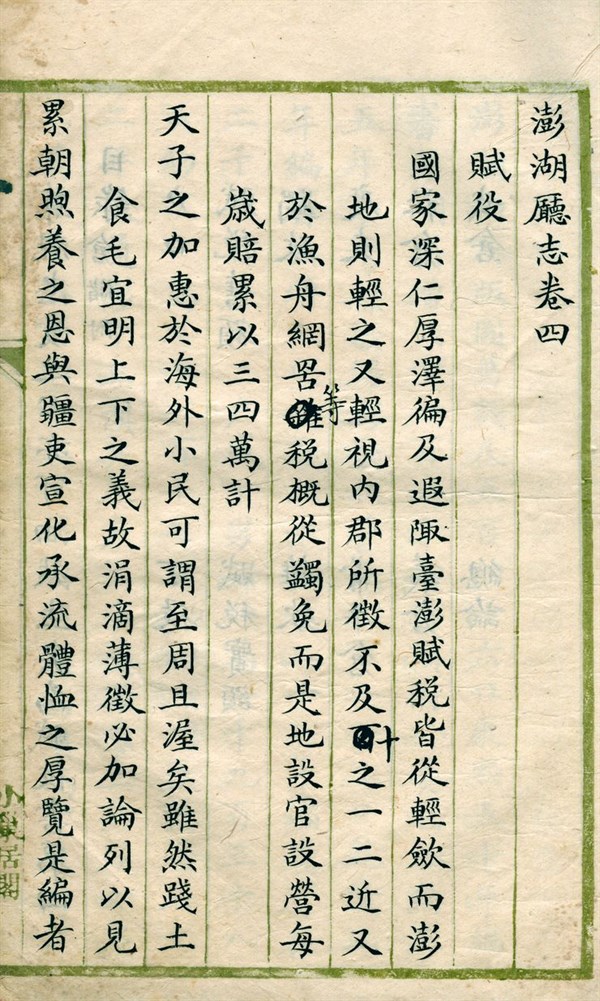 澎湖廳志卷四
賦役
國家深仁厚澤徧及遐陬臺澎賦稅皆從輕歛而澎
地則輕之又輕視內郡所徵不及十之一二近又
於漁舟網罟等稅概從蠲免而是地設官設營每
歲賠累以三四萬計
天子之加惠於海外小民可謂至周且渥矣雖然踐土
食毛宜明上下之義故涓滴薄徵必加論列以見
累朝煦養之恩與疆吏宣化承流體恤之厚覽是編者